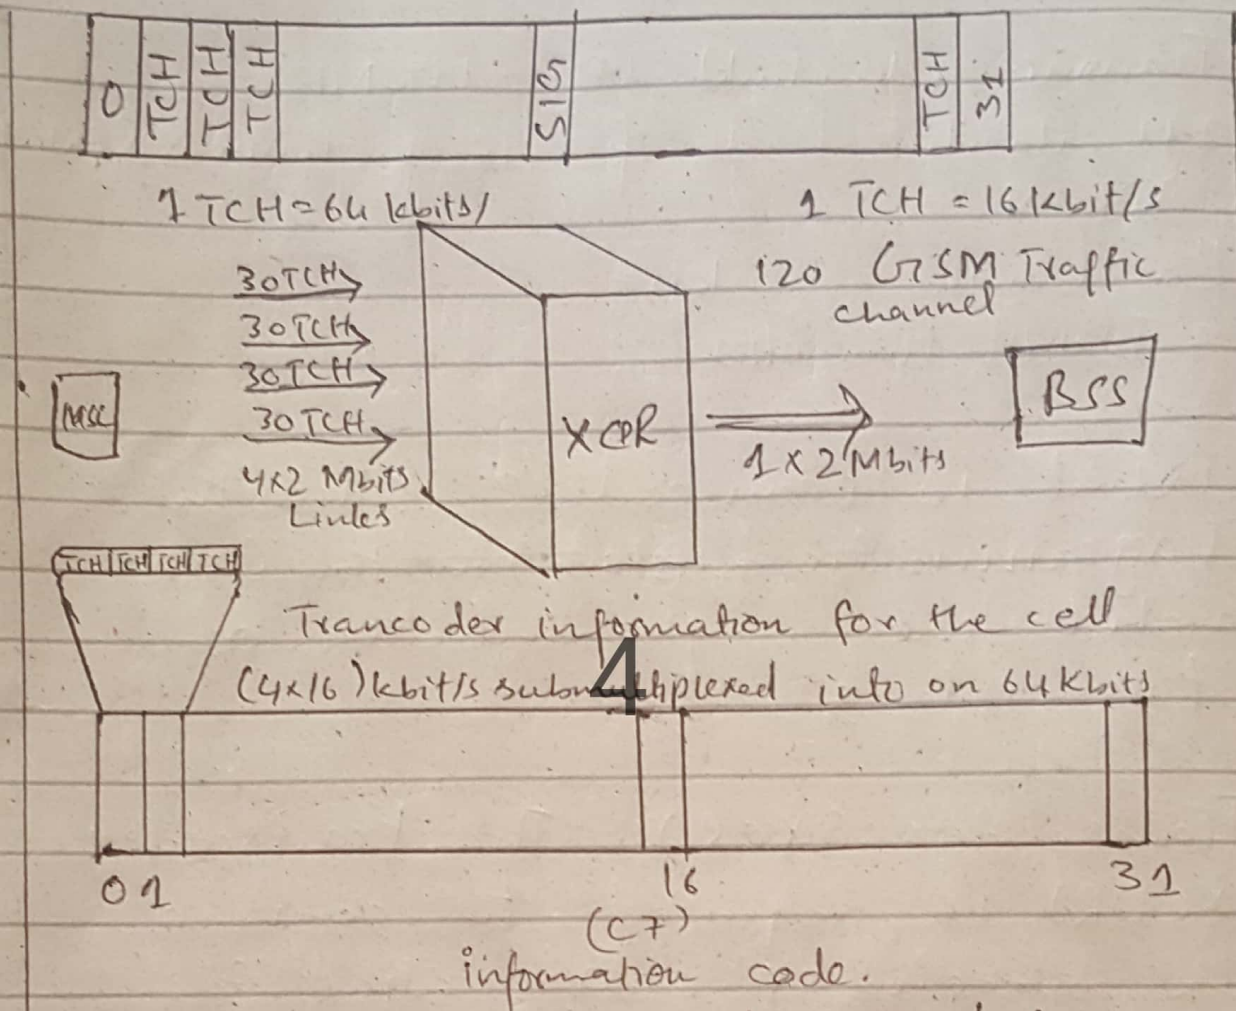 0 TCH TCH TCH SIG TCH 31
1 TCH = 64 kbits/
1 TCH = 16 kbit/s
30TCH
30TCH
30TCH
30TCH
4x2 Mbits
Links
MSC
XCDR
120 GSM Traffic
channel
1 x 2 Mbits
BSS
TCH TCH TCH TCH
Trancoder information for the cell
(4x16) kbit/s submultiplexed into on 64 Kbits
4
0 1 16 31
(C7)
information code.